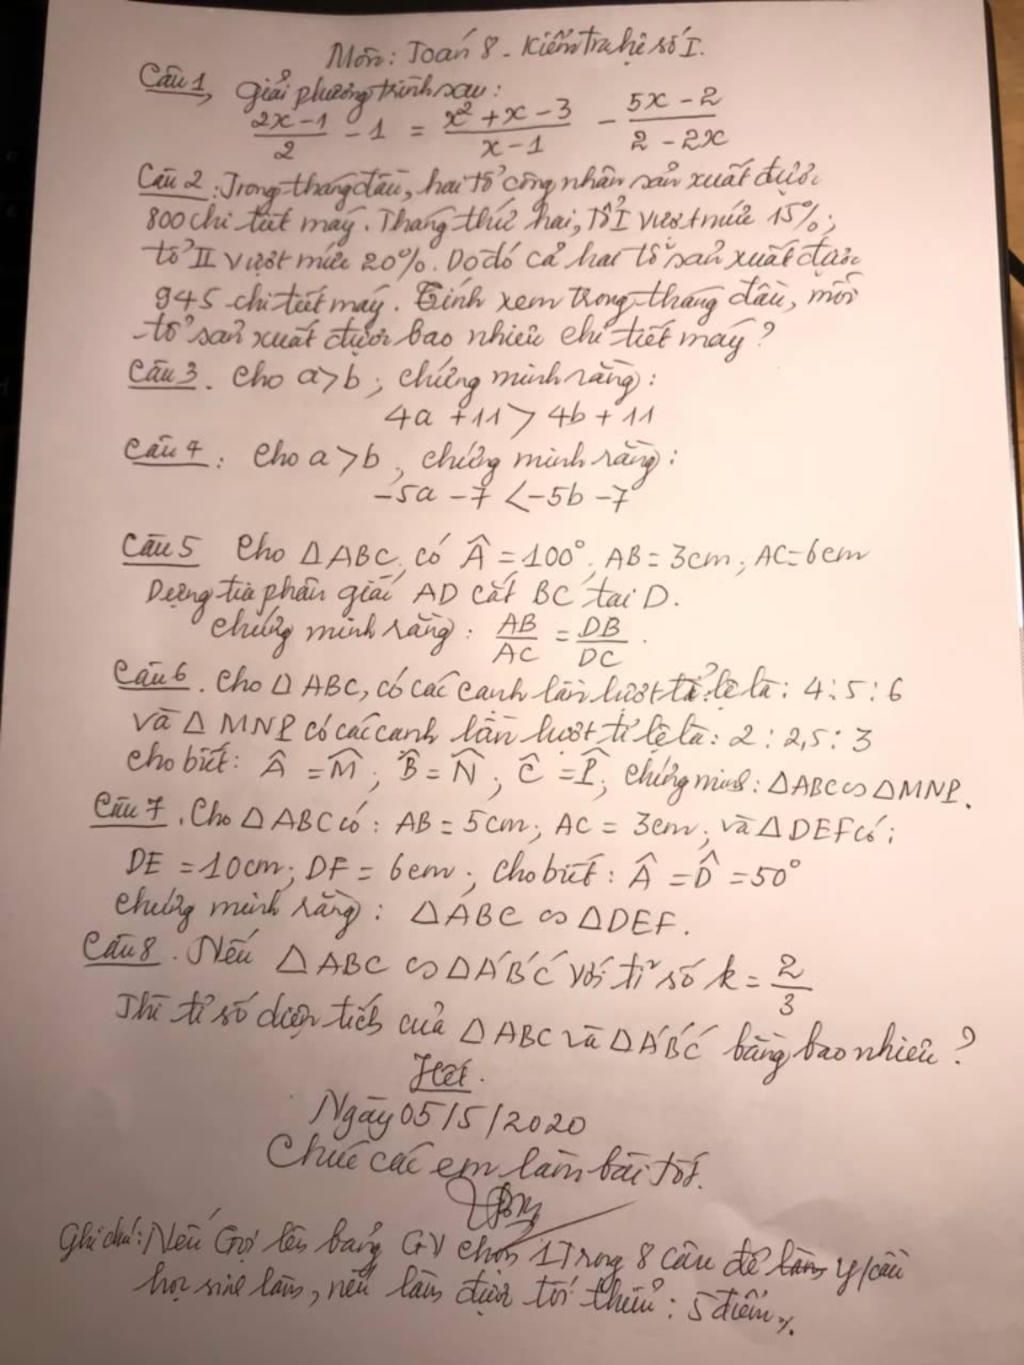 Môn: Toán 8 - Kiểm tra hệ số I.
Câu 1, giải phương trình sau:
(2x - 1)/2 - 1 = (x² + x - 3)/(x - 1) - (5x - 2)/(2 - 2x)
Câu 2: Trong tháng đầu, hai tổ công nhân sản xuất được
800 chi tiết máy. Tháng thứ hai, Tổ I vượt mức 15%;
tổ II vượt mức 20%. Do đó cả hai tổ sản xuất được
945 chi tiết máy. Tính xem trong tháng đầu, mỗi
tổ sản xuất được bao nhiêu chi tiết máy?
Câu 3. Cho a > b; chứng minh rằng:
4a + 11 > 4b + 11
Câu 4: Cho a > b, chứng minh rằng:
-5a - 7 < -5b - 7
Câu 5 Cho ΔABC, có Â = 100°, AB = 3cm; AC = 6cm
Dựng tia phân giác AD cắt BC tại D.
Chứng minh rằng: AB/AC = DB/DC.
Câu 6. Cho Δ ABC, có các cạnh lần lượt tỉ lệ là: 4 : 5 : 6
và Δ MNP có các cạnh lần lượt tỉ lệ là: 2 : 2,5 : 3
Cho biết: Â = M̂; B̂ = N̂; Ĉ = P̂; Chứng minh: ΔABC ∽ ΔMNP.
Câu 7. Cho ΔABC có: AB = 5cm; AC = 3cm; và ΔDEF có:
DE = 10cm; DF = 6cm; Cho biết: Â = D̂ = 50°
Chứng minh rằng: ΔABC ∽ ΔDEF.
Câu 8. Nếu ΔABC ∽ ΔA'B'C' với tỉ số k = 2/3
Thì tỉ số diện tích của ΔABC và ΔA'B'C' bằng bao nhiêu?
Hết.
Ngày 05/5/2020
Chúc các em làm bài tốt.
Ghi chú: Nếu Gọi lên bảng GV chọn 1 Trong 8 câu để y/cầu
học sinh làm, nếu làm được tối thiểu: 5 điểm